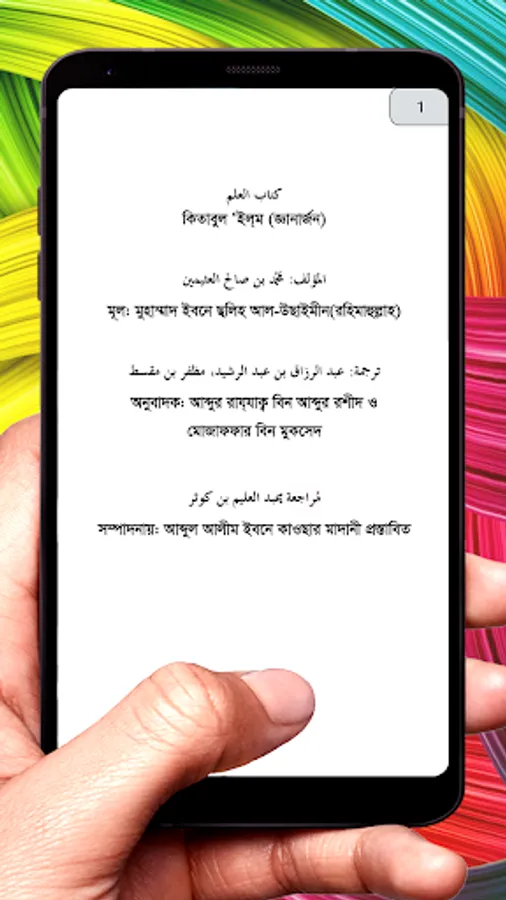 1
كتاب العلم
কিতাবুল ‘ইল্‌ম (জ্ঞানার্জন)
المؤلف: محمد بن صالح العثيمين
মূল: মুহাম্মাদ ইবনে ছ্বলিহ আল-উছাইমীন(রহিমাহুল্লাহ)
ترجمة: عبد الرزاق بن عبد الرشيد، مظفر بن مقسط
অনুবাদক: আব্দুর রায্‌যাক্ব বিন আব্দুর রশীদ ও
মোজাফফার বিন মুকসেদ
مُراجعة بن كوثر العليم
সম্পাদনায়: আব্দুল আলীম ইবনে কাওছার মাদানী প্রস্তাবিত